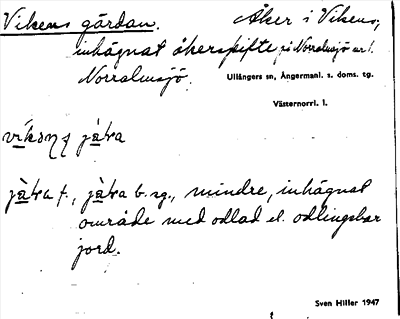 Vikens gärdan. Åker i Vikens,
inhägnat åkerskifte på Norralmsjö nr 1.
Norralmsjö.
Ullångers sn, Ångermanl. s. doms. tg.
Västernorrl. l.
jàⱡra
jàⱡra f., jàⱡra b. sg., mindre, inhägnat
område med odlad el. odlingsbar
jord.
Sven Hiller 1947